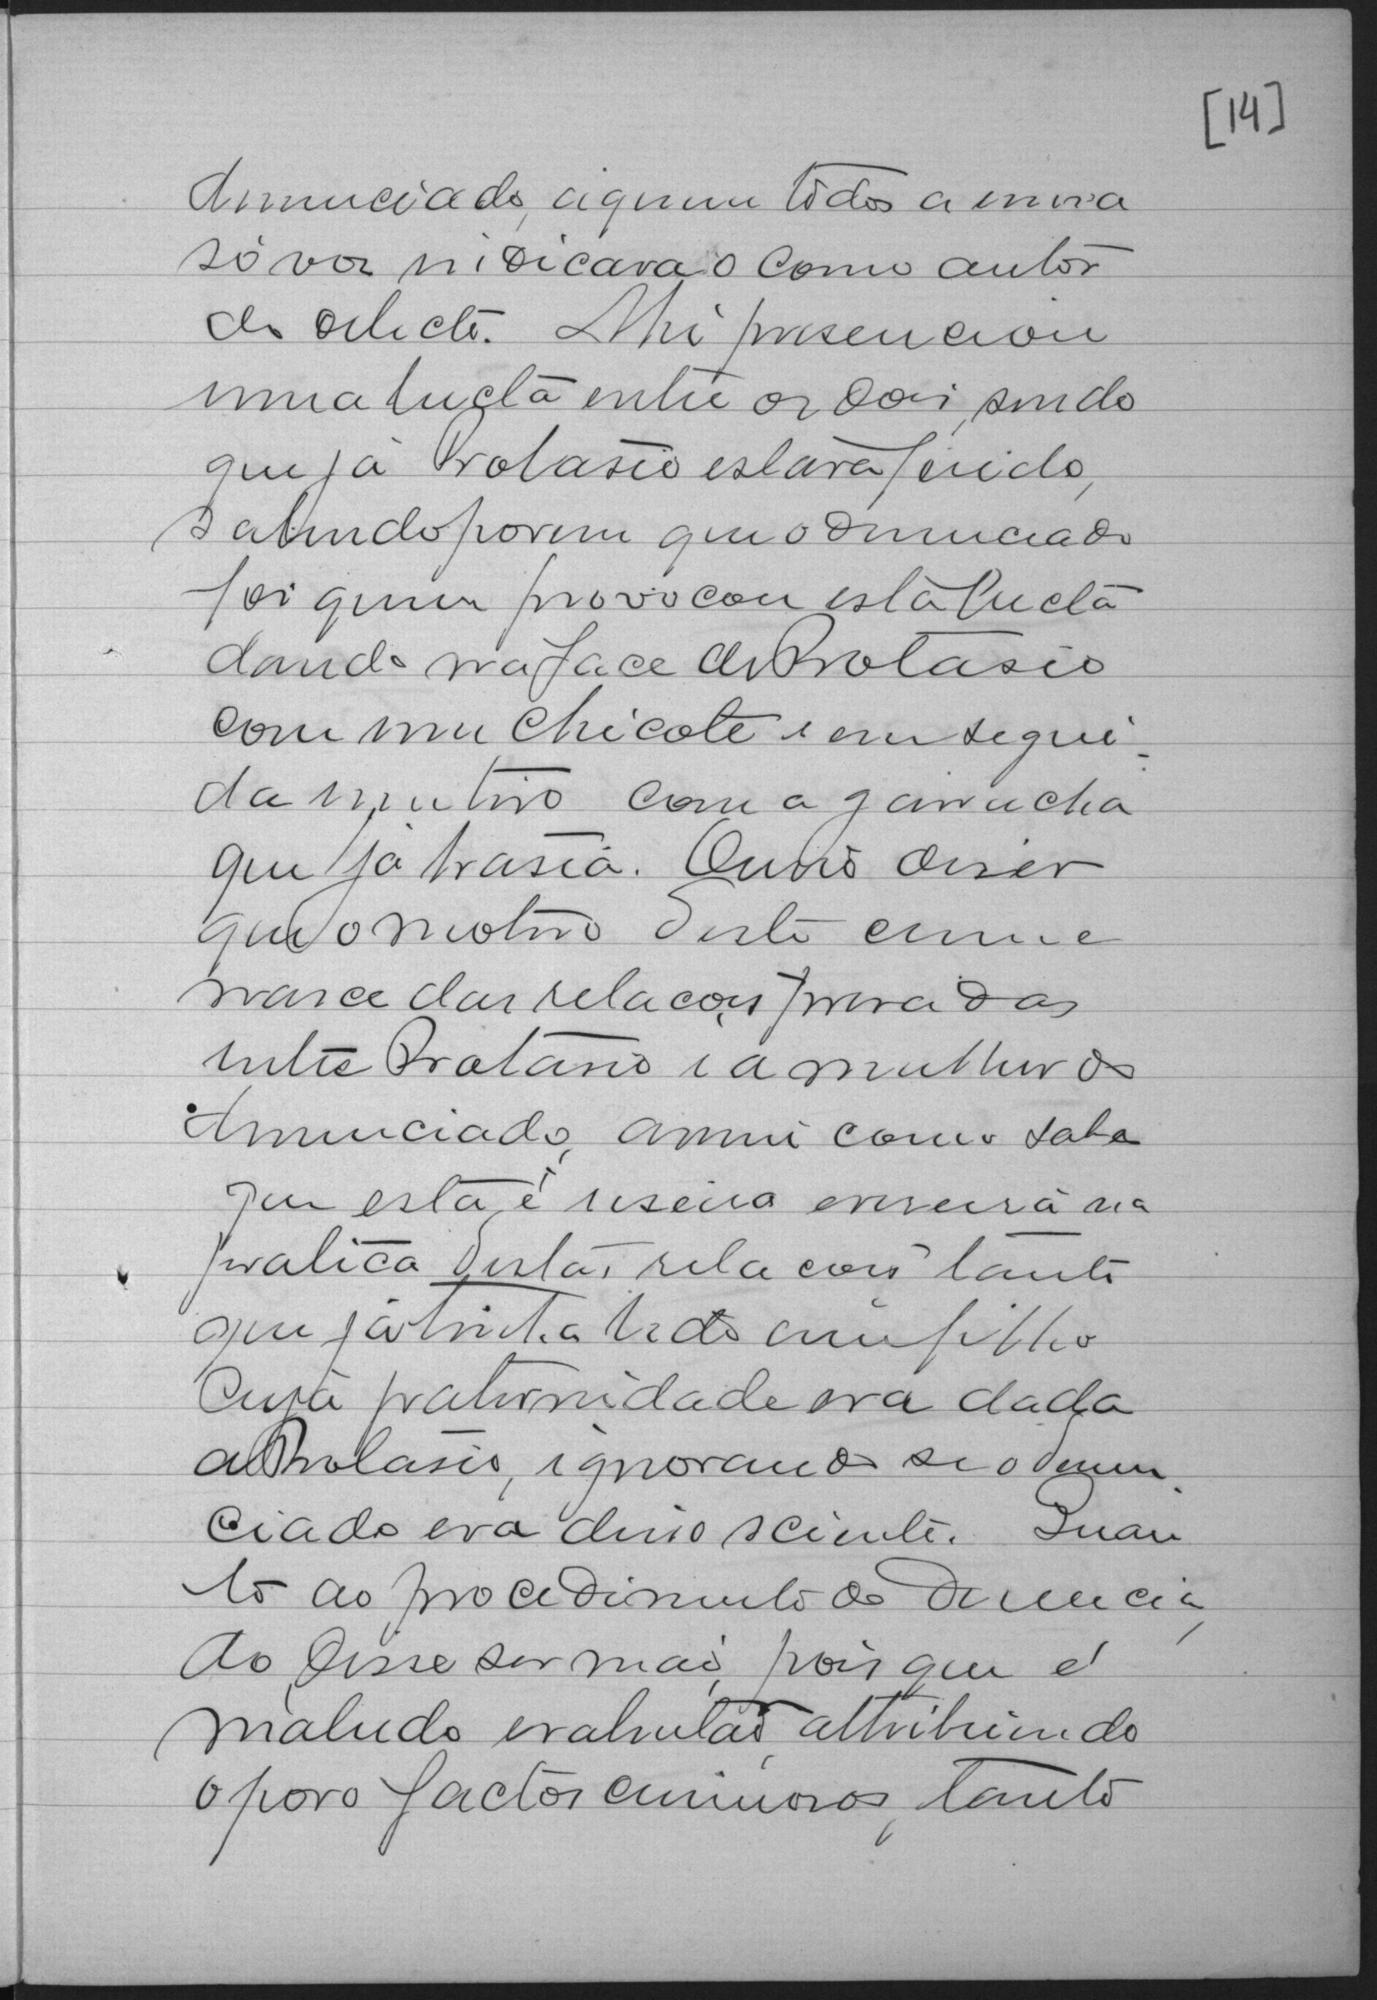 [14]
denunciado, a quem todos a uma
só voz indicavão como autor
do delicto. Ahi presenciou
uma lucta entre os dois, sendo
que já Protasio estava ferido,
sabendo porem que o denunciado
foi quem provocou esta lucta
dando na face de Protasio
com um chicote e em segui-
da um tiro com a garrucha
que já trasia. Ouvio diser
que o motivo deste crime
nasce das relações privadas
entre Protasio e a mulher do
denunciado, assim como sabe
que esta é useira e veseira na
pratica destas relações tanto
que já tinha tido um filho
cuja paternidade era dada
a Protasio, ignorando se o denun-
ciado era disso sciente. Quan
to ao procedimento do denuncia
do, disse ser mao, pois que é
maludo e valentão, attribuindo
o povo factos criminosos, tanto